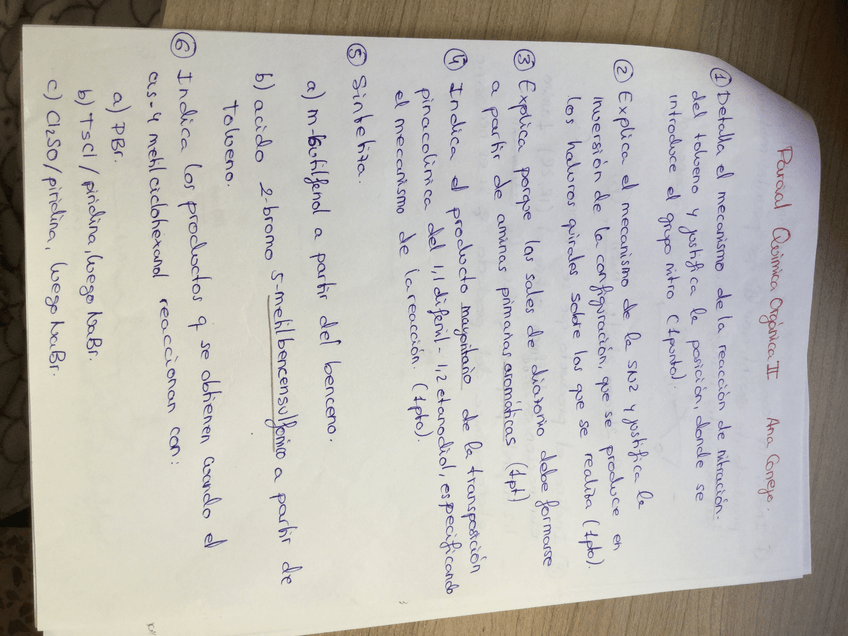 Parcial Química Orgánica II Ana Conejo.
① Detalla el mecanismo de la reacción de nitración.
del tolueno y justifica la posición, donde se
introduce el grupo nitro (1punto).
② Explica el mecanismo de la SN2 y justifica la
inversión de la configuración, que se produce en
los haluros quirales sobre los que se realiza (1pto).
③ Explica porque las sales de diazonio debe formarse
a partir de aminas primarias aromáticas (1pt)
④ Indica el producto mayoritario de la transposición
pinacolínica del 1,1 difenil-1,2 etanodiol, especificando
el mecanismo de la reacción. (1pto).
⑤ Sintetiza.
a) m-butilfenol a partir del benceno.
b) acido 2-bromo 5-metilbencensulfonico a partir de
tolueno.
⑥ Indica los productos q se obtienen cuando el
cis-4 metilciclohexanol reaccionan con:
a) PBr.
b) TsCl/piridina, luego NaBr.
c) Cl2SO/piridina, luego NaBr.